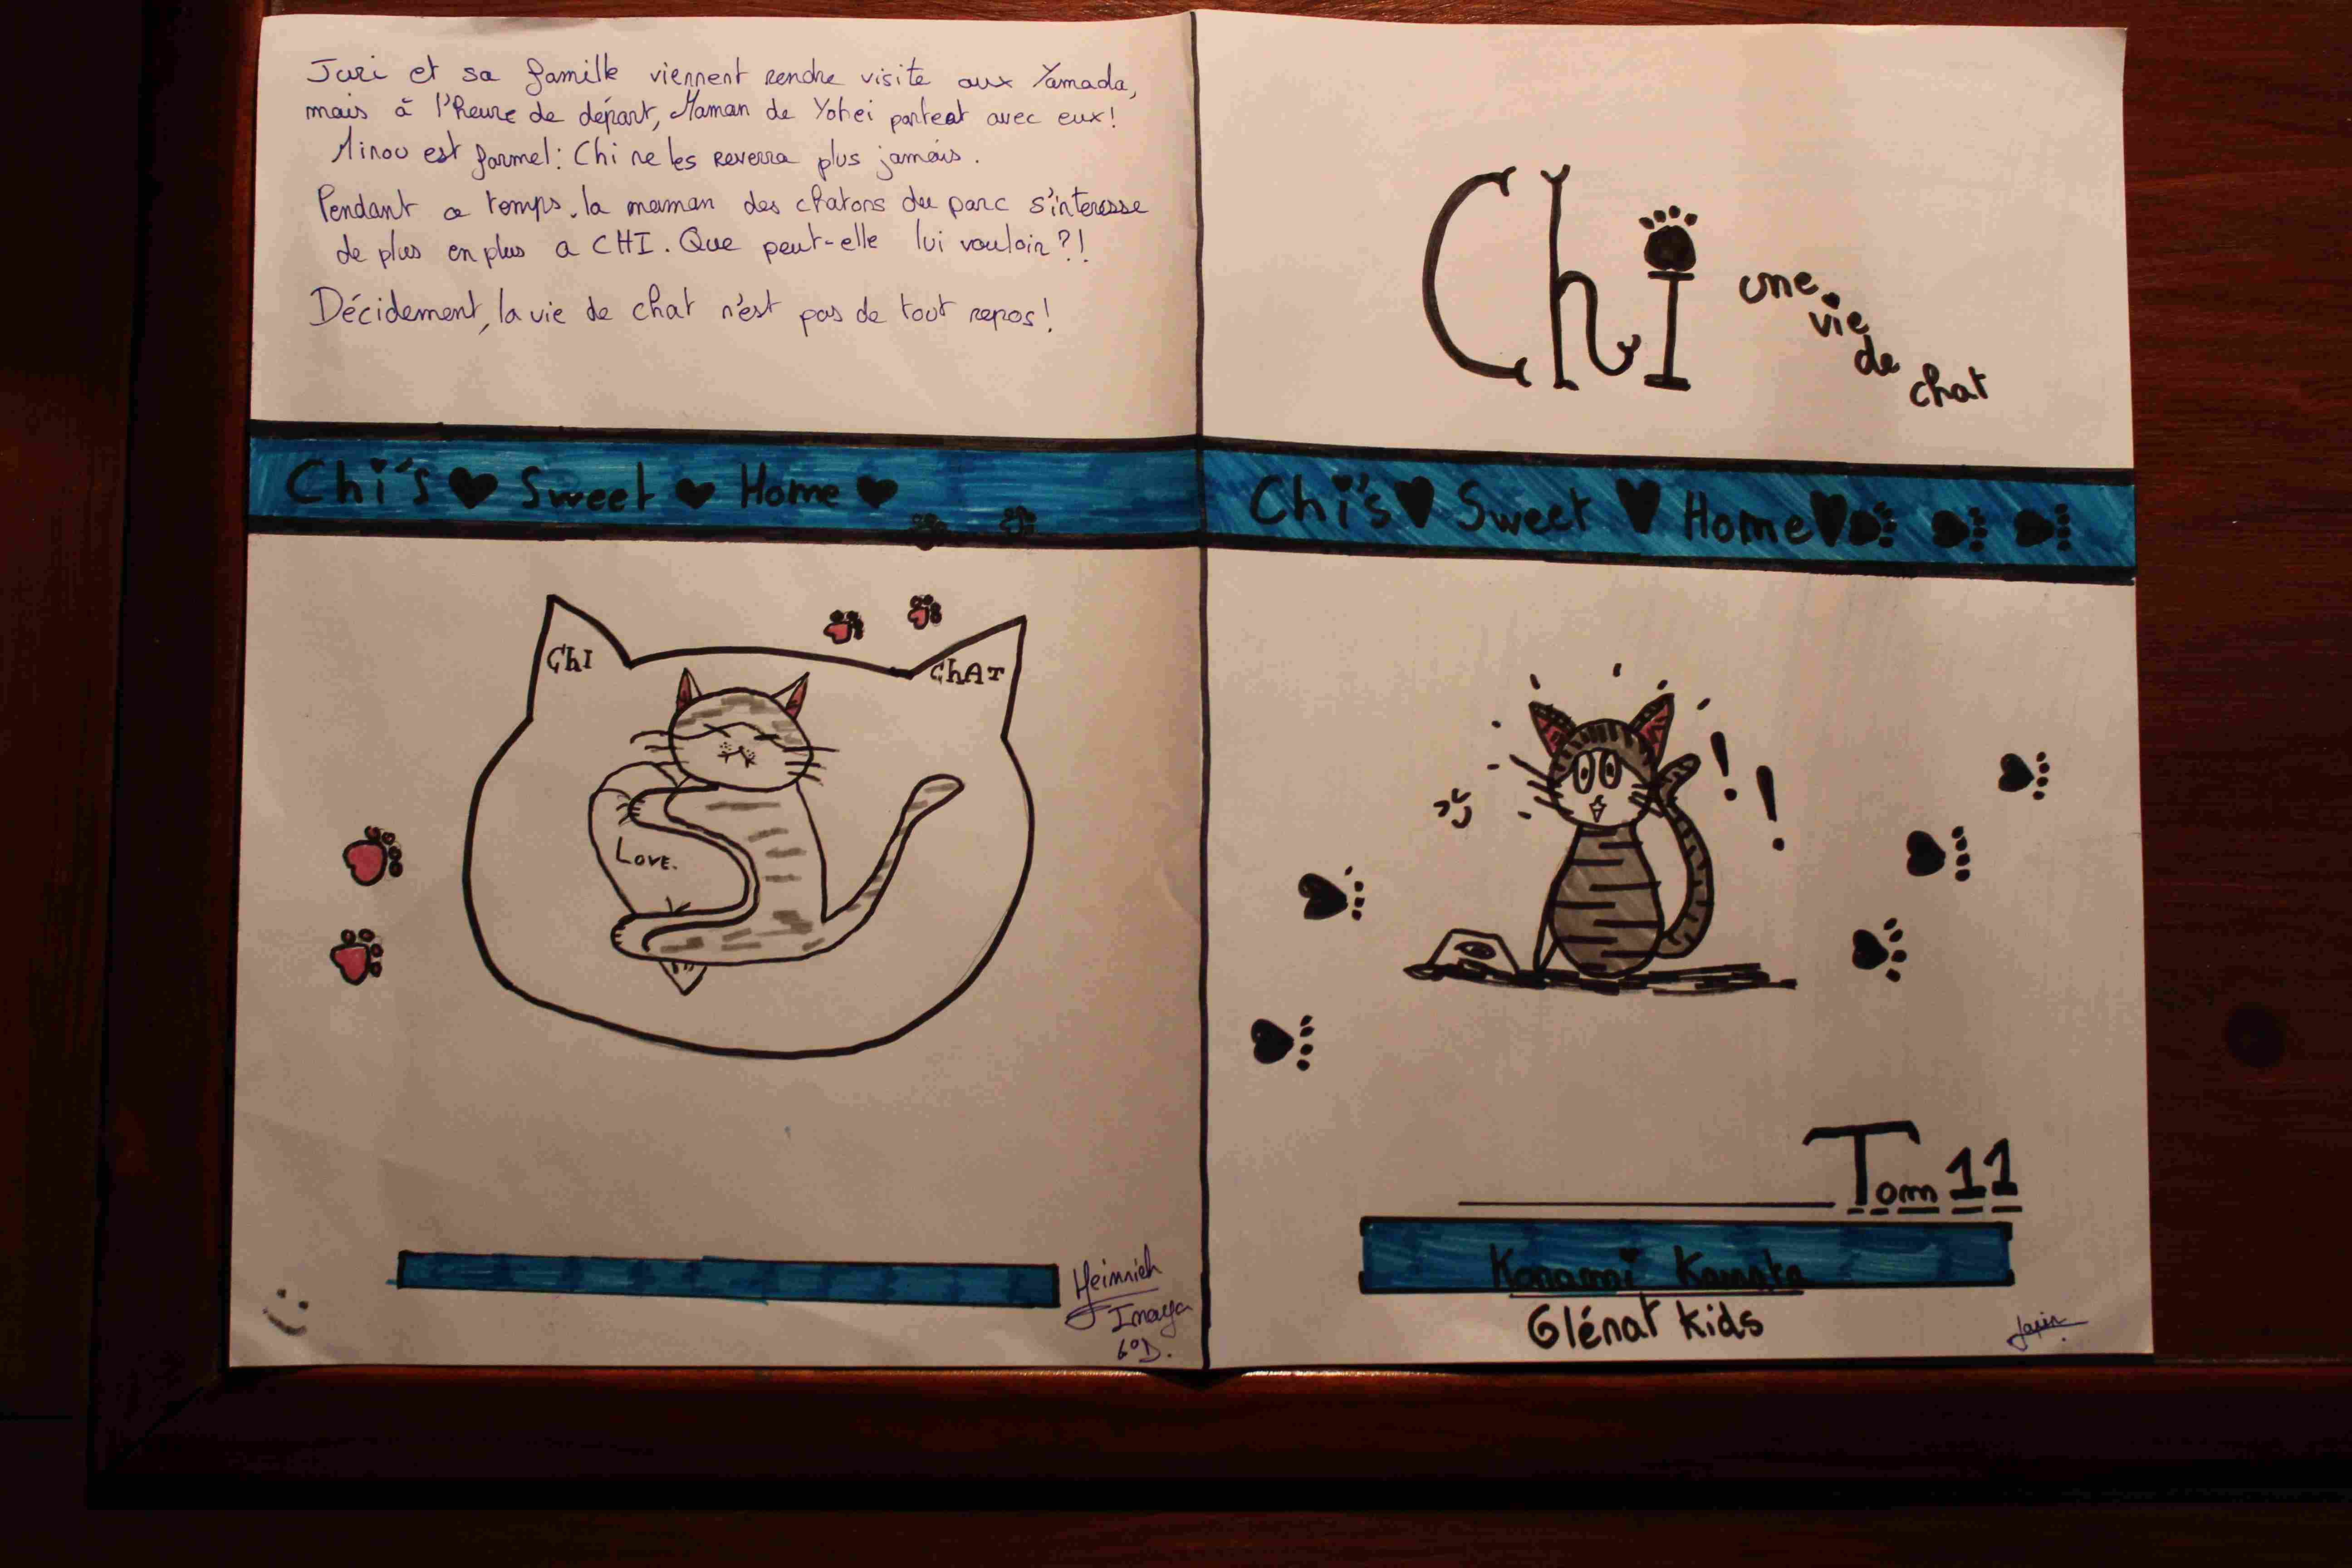 Juri et sa famille viennent rendre visite aux Yamada,
mais à l'heure de départ, Maman de Yohei partent avec eux!
Minou est formel: Chi ne les reverra plus jamais.
Pendant ce temps, la maman des chatons du parc s'interesse
de plus en plus a CHI. Que peut-elle lui vouloir?!
Décidement, la vie de chat n'est pas de tout repos!
Chi's ♥ Sweet ♥ Home ♥
ChI
ChAT
LOVE.
Heinrich
Inaya
6°D.
Chi
une
vie
de
chat
Chi's ♥ Sweet ♥ Home ♥
!!
Tom 11
Konami Kanata
Glénat kids